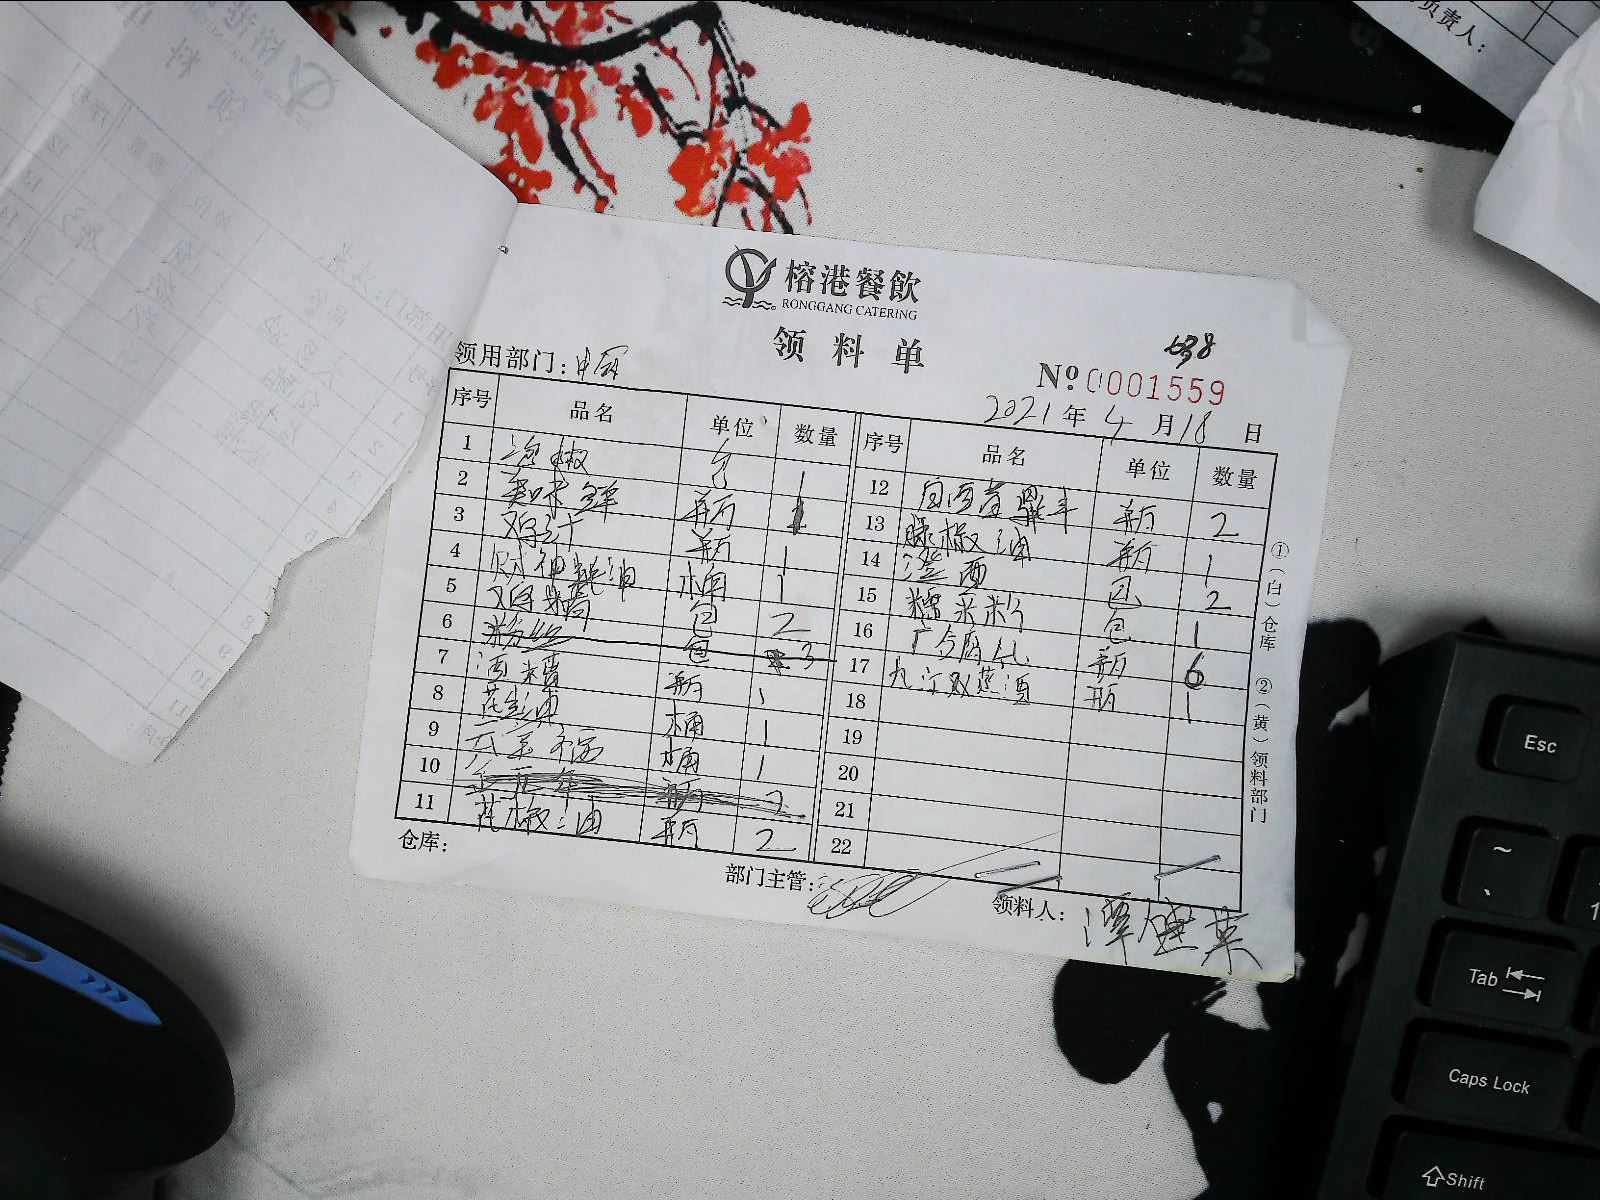 负责人:
榕港餐飲
RONGGANG CATERING
领料单
638
领用部门:中厨
№0001559
2021年4月18日
序号 品名 单位 数量
1 泡椒 包 1
2 美味鲜 瓶 1
3 鸡汁 瓶 1
4 桶 1
5 鸡精 包 2
6 粉丝 包 3
7 酒糟 瓶 1
8 花生油 桶 1
9 桶 1
10 瓶 2
11 花椒油 瓶 2
序号 品名 单位 数量
12 瓶 2
13 藤椒油 瓶 1
14 澄面 包 2
15 糯米粉 包 1
16 广合腐乳 瓶 6
17 九江双蒸酒 瓶 1
18
19
20
21
22
①(白)仓库 ②(黄)领料部门
仓库:
部门主管:
领料人:
Esc
~
Tab
Caps Lock
Shift